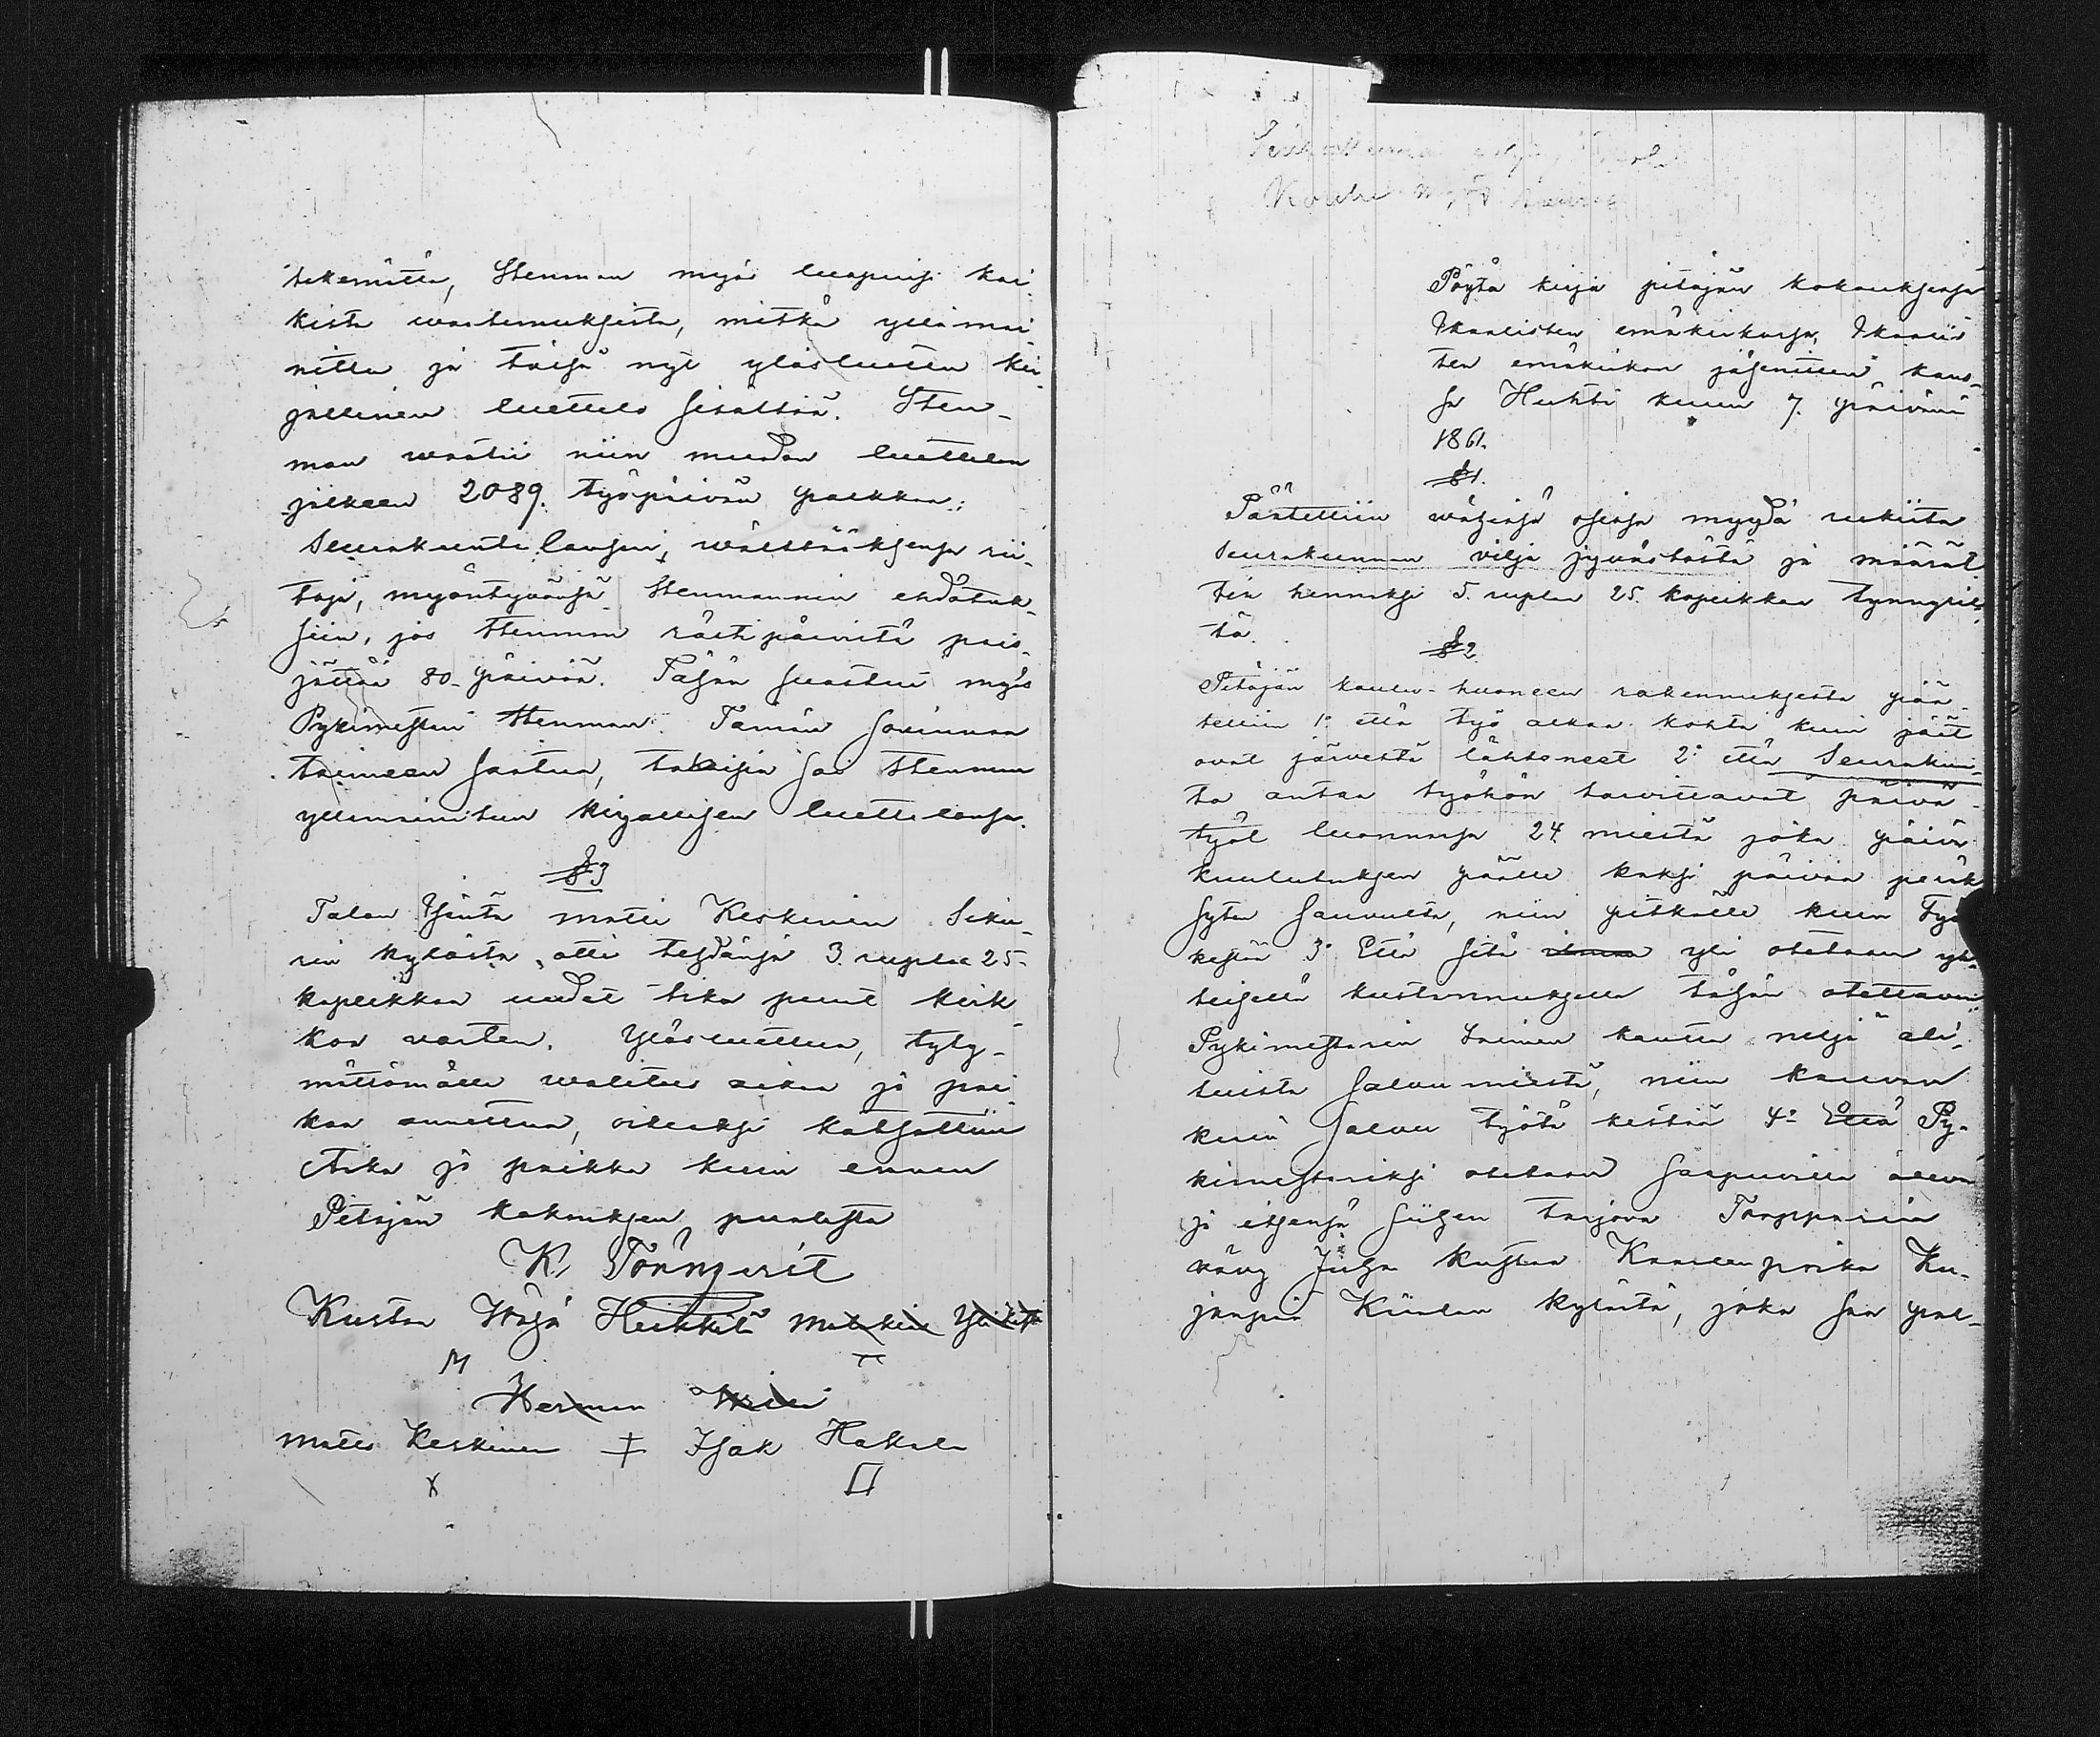 tekemättä, Stenman myös luopuisi kai-
kista wastemuksista, mitkä yllämai-
nittu ja täisä nyt ylösluettu kir-
jallinen luettelo sisältää. Sten-
man waatii niin muodon luettelon
jälkeen 2089. työpäivän palkkaa;
Seurakunta lausui, wälttääksensä rii-
toja, myöntyvänsä Stenmannin ehdotuk-
siin, jos Stenman rästipäivistä pois
jättää 80 päivää. Tähän suostui myös
Pykimestari Stenman. Tämän sovinnon
toimeen saatua, takaisin sai Stenman
yllämainitun kirjallisen luettelonsa.
§3
Talon Isäntä Matti Keskinen Siku-
rin kylästä, otti tehdänsä 3. ruplaa 25.
kopeikkaa uudet tika puut kirk-
koa varten. Ylösluettua, tyty-
mättömälle walitus aikaa ja pai-
kaa annettua, oikeaksi katsottiin
Aika ja paikka kuin ennen
Pitäjän kokouksen puolesta
K. Törnqvist
Kustaa Iso Heikkilä
M
Herman
Matti Keskinen ‡ Isak Hakala
X
Pöytä kirja pitäjän kokouksessa
Ikaalisten emäkirkossa, Ikaalis
ten emäkirkon jäsenitten kans-
sa Huhti kuun 7. päivänä
1861.
§1.
Päätettiin wähissä osissa myydä rukiita
Seurakunnan vilja jyvästöstä ja määrät-
tiin hinnaksi 5. ruplaa 25. kopeikkaa tynnyris-
tä.
§2
Pitäjän koulu-huoneen rakennuksesta pää-
tettiin 1° että työ alkaa kohta kuin jäät
ovat järvestä lähteneet 2° että Seurakun-
ta antaa työhön tarvittavat päivä-
työt luonnossa 24 miestä joka päivä
kuulutuksen päälle kaksi päivää peräk
syten sauvulta, niin pitkälle kuin työ
kestää 3° Että sitä yli otetaan yh-
teisellä kustannuksella tähän otettavan
Pykimestarin toimen kautta neljä ala-
tuista salvumiestä, niin kauvan
kuin salvu työtä kestää 4° Että Py-
kimestariksi otetaan saapuvilla oleva
ja itsensä siihen tarjova Torpparin
wäng Juha Kustaa Kaarlenpoika Ku-
janpää Kiialan kylästä, joka saa pal-